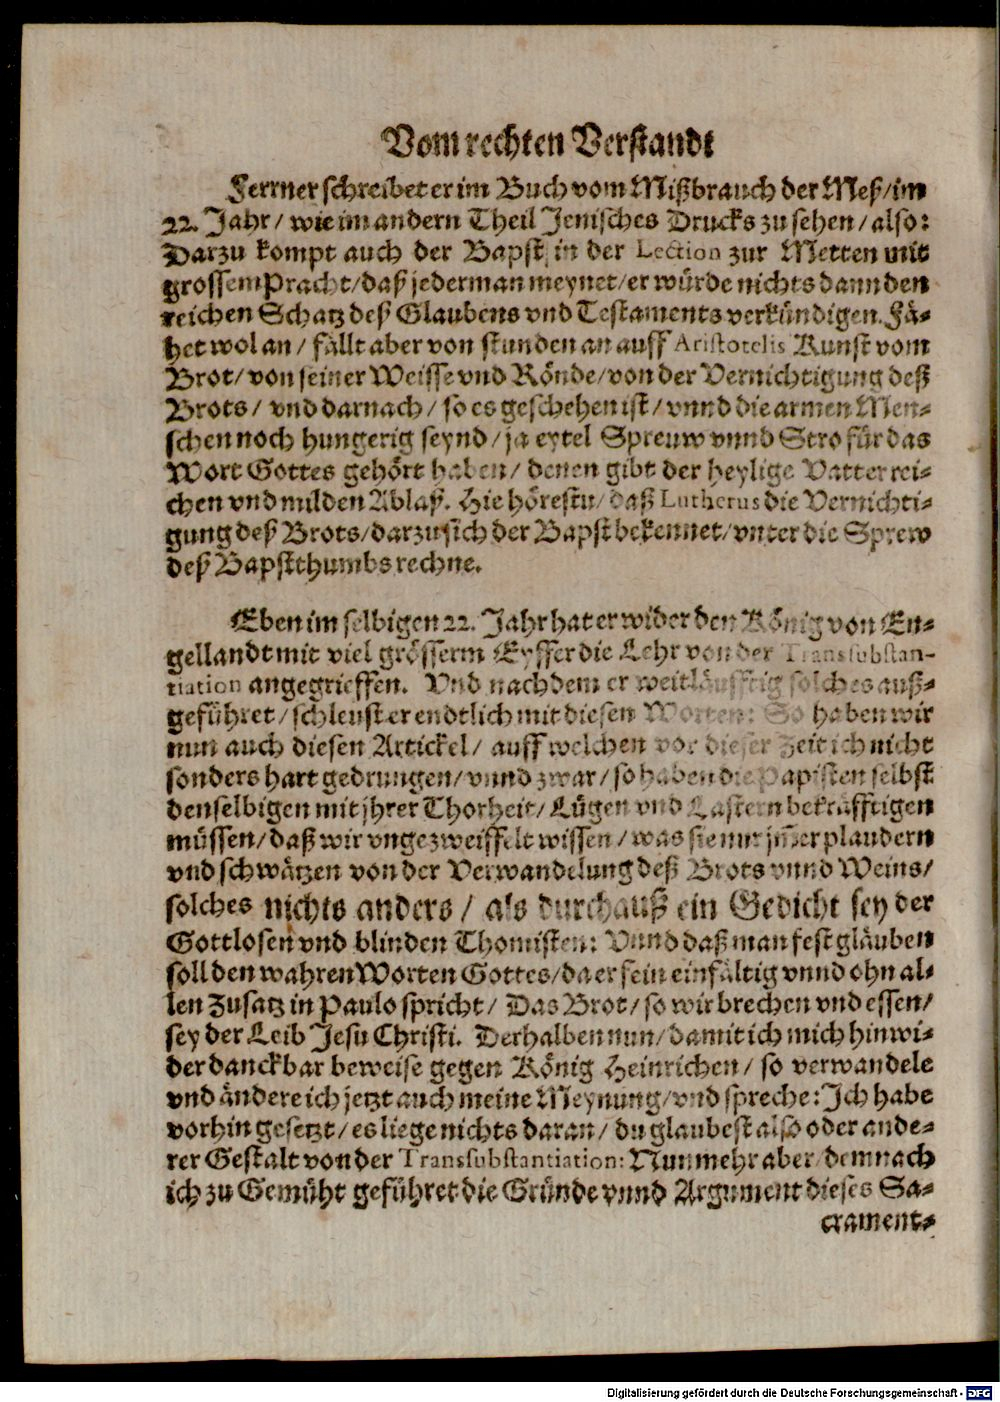 Vom rechten Verstandt
Ferrner schreibet er im Buch vom Mißbrauch der Meß/im
22. Jahr/ wie im andern Theil Jenisches Drucks zu sehen/also:
Darzu kompt auch der Bapst in der Lection zur Metten mit
grossem Pracht/daß jederman meynet/er würde nichts dann den
reichen Schatz deß Glaubens vnd Testaments verkündigen. Fä-
het wol an/ fällt aber von stunden an auff Aristotelis Kunst vom
Brot/von seiner Weisse vnd Rönde/von der Vernichtigung deß
Brots/ vnd darnach/ so es geschehen ist/ vnnd die armen Men-
schen noch hungerig seynd/ ja eytel Spreuw vnnd Stro für das
Wort Gottes gehört haben/ denen gibt der heylige Vatter rei-
chen vnd milden Ablaß. Hie hörestu/ daß Lutherus die Vernichti-
gung deß Brots/darzu sich der Bapst bekennet/vnter die Sprew
deß Bapstthumbs rechne.
Eben im selbigen 22. Jahr hat er wider den König von En-
gellandt mit viel grösserm Eyffer die Lehr von der Transsubstan-
tiation angegrieffen. Vnd nachdem er weitläufftig solches auß-
geführet/schleust er endtlich mit diesen Worten: So haben wir
nun auch diesen Artickel/ auff welchen vor dieser Zeit ich nicht
sonders hart gedrungen/vnnd zwar/so haben die Papisten selbst
denselbigen mit jhrer Thorheit/ Lügen vnd Lastern bekräfftigen
müssen/daß wir vngezweiffelt wissen/was sie nur jm̃er plaudern
vnd schwätzen von der Verwandelung deß Brots vnnd Weins/
solches nichts anders/ als durchauß ein Gedicht sey der
Gottlosen vnd blinden Thomisten: Vnnd daß man fest gläuben
soll den wahren Worten Gottes/da er fein einfältig vnnd ohn al-
len Zusatz in Paulo spricht/ Das Brot/ so wir brechen vnd essen/
sey der Leib Jesu Christi. Derhalben nun/damit ich mich hinwi-
der danckbar beweise gegen König Heinrichen/ so verwandele
vnd ändere ich jetzt auch meine Meynung/vnd spreche: Ich habe
vorhin gesetzt/es liege nichts daran/ du glaubest also oder ande-
rer Gestalt von der Transsubstantiation: Nunmehr aber/demnach
ich zu Gemüht geführet die Gründe vnnd Argument dieses Sa-
crament-
Digitalisierung gefördert durch die Deutsche Forschungsgemeinschaft - DFG